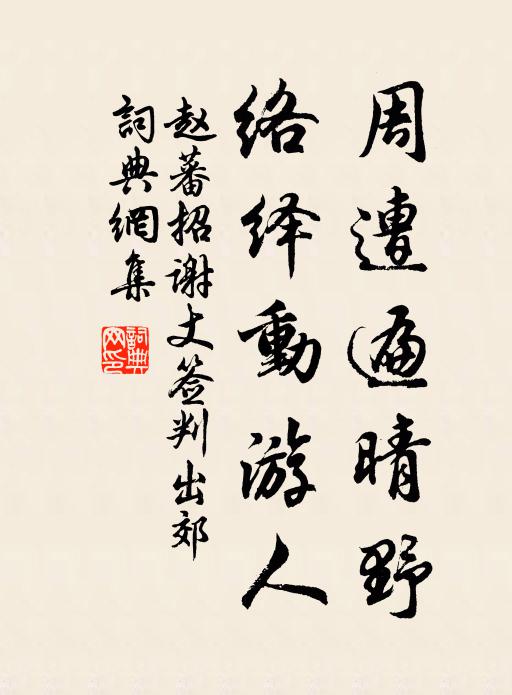 周遭遍晴野
络绎動游人
赵蕃招谢丈签判出郊
詞典網集
詞典网印